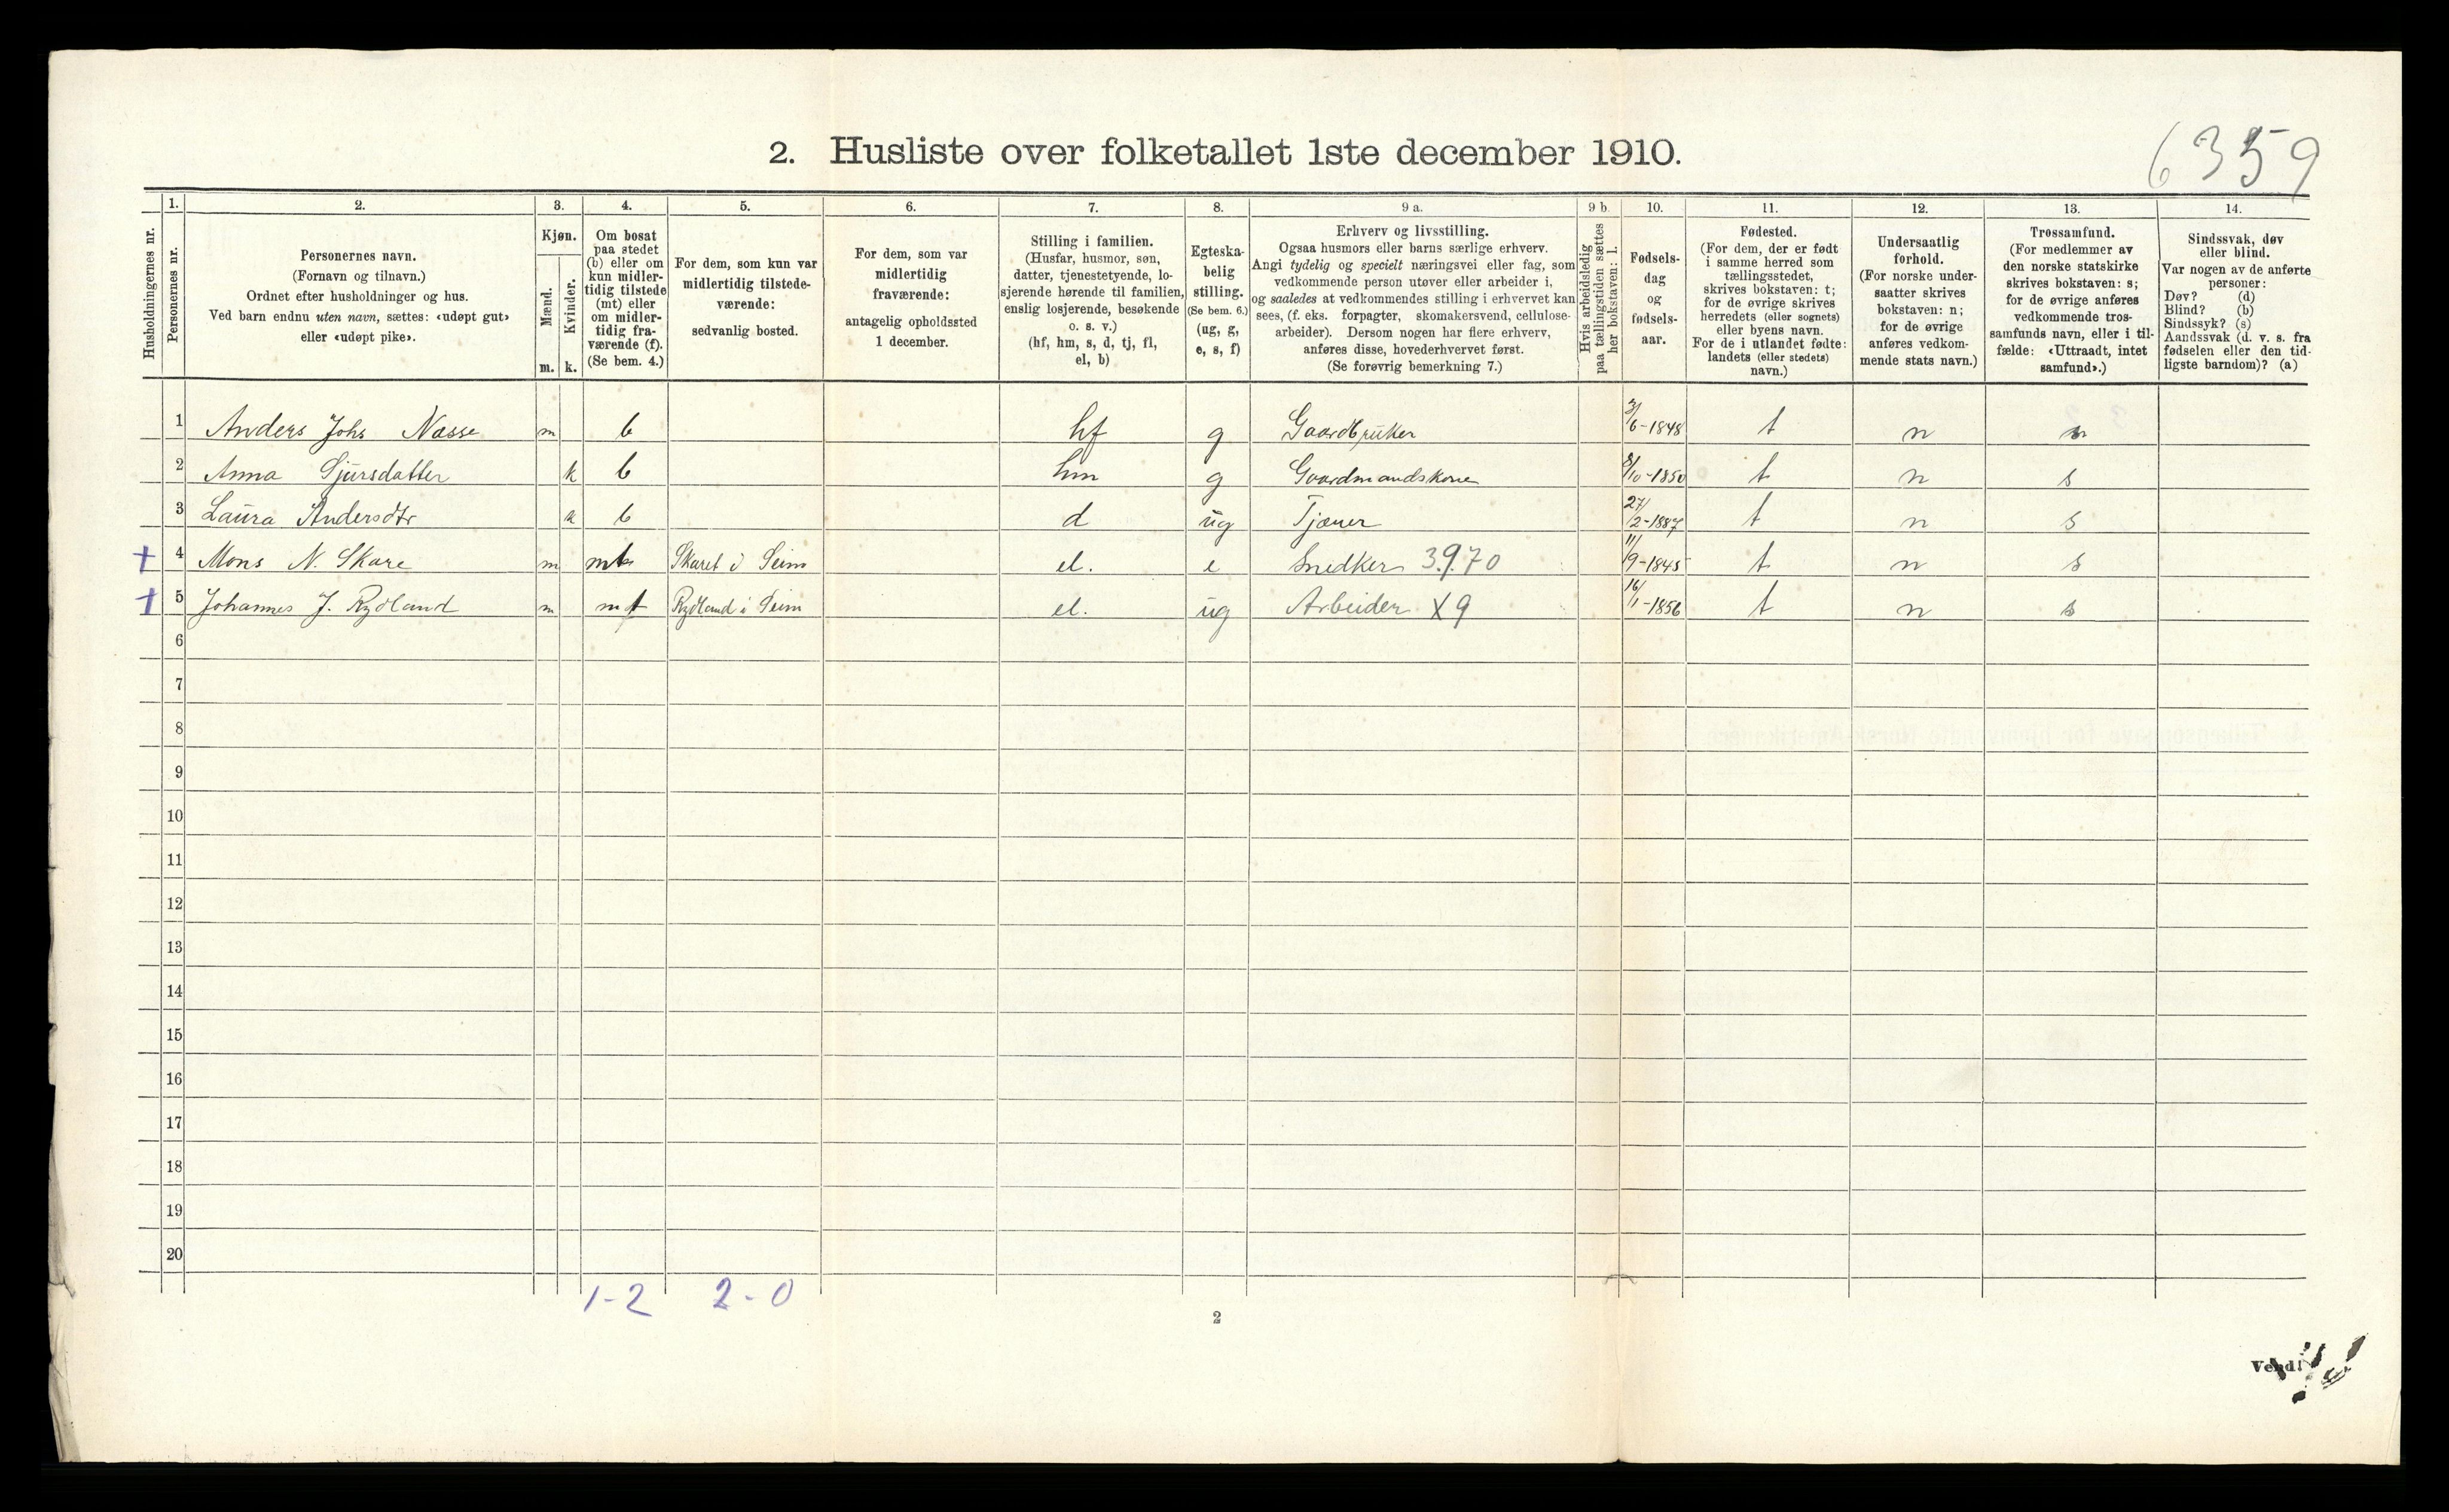 6359
2. Husliste over folketallet 1ste december 1910.
Husholdningernes nr.
1.
Personernes nr.
2.
Personernes navn.
(Fornavn og tilnavn.)
Ordnet efter husholdninger og hus.
Ved barn endnu uten navn, sættes: «udøpt gut»
eller «udøpt pike».
3.
Kjøn.
Mænd.
Kvinder.
m. k.
4.
Om bosat
paa stedet
(b) eller om
kun midler-
tidig tilstede
(mt) eller
om midler-
tidig fra-
værende (f).
(Se bem. 4.)
5.
For dem, som kun var
midlertidig tilstede-
værende:
sedvanlig bosted.
6.
For dem, som var
midlertidig
fraværende:
antagelig opholdssted
1 december.
7.
Stilling i familien.
(Husfar, husmor, søn,
datter, tjenestetyende, lo-
sjerende hørende til familien,
enslig losjerende, besøkende
o. s. v.)
(hf, hm, s, d, tj, fl,
el, b)
8.
Egteska-
belig
stilling.
(Se bem. 6.)
(ug, g,
e, s, f)
9 a.
Erhverv og livsstilling.
Ogsaa husmors eller barns særlige erhverv.
Angi tydelig og specielt næringsvei eller fag, som
vedkommende person utøver eller arbeider i,
og saaledes at vedkommendes stilling i erhvervet kan
sees, (f. eks. forpagter, skomakersvend, cellulose-
arbeider). Dersom nogen har flere erhverv,
anføres disse, hovederhvervet først.
(Se forøvrig bemerkning 7.)
9 b.
Hvis arbeidsledig
paa tællingstiden sættes
her bokstaven: l.
10.
Fødsels-
dag
og
fødsels-
aar.
11.
Fødested.
(For dem, der er født
i samme herred som
tællingsstedet,
skrives bokstaven: t;
for de øvrige skrives
herredets (eller sognets)
eller byens navn.
For de i utlandet fødte:
landets (eller stedets)
navn.)
12.
Undersaatlig
forhold.
(For norske under-
saatter skrives
bokstaven: n;
for de øvrige
anføres vedkom-
mende stats navn.)
13.
Trossamfund.
(For medlemmer av
den norske statskirke
skrives bokstaven: s;
for de øvrige anføres
vedkommende tros-
samfunds navn, eller i til-
fælde: «Uttraadt, intet
samfund».)
14.
Sindssvak, døv
eller blind.
Var nogen av de anførte
personer:
Døv? (d)
Blind? (b)
Sindssyk? (s)
Aandssvak (d. v. s. fra
fødselen eller den tid-
ligste barndom)? (a)
1 Anders Johs Næsse m b hf g Gaardbruker 3/6-1848 t n s
2 Anna Sjursdatter k b hm g Gaardmandskone 8/10-1850 t n s
3 Laura Andersdtr k b d ug Tjæner 27/2-1887 t n s
+ 4 Mons N. Skare m mt Skaret i Seim el. e Snedker 3.9.70 11/9-1845 t n s
+ 5 Johannes J. Rydland m mt Rydland i Seim el. ug Arbeider X9 16/1-1856 t n s
6
7
8
9
10
11
12
13
14
15
16
17
18
19
20
1-2 2-0
2
Vend!